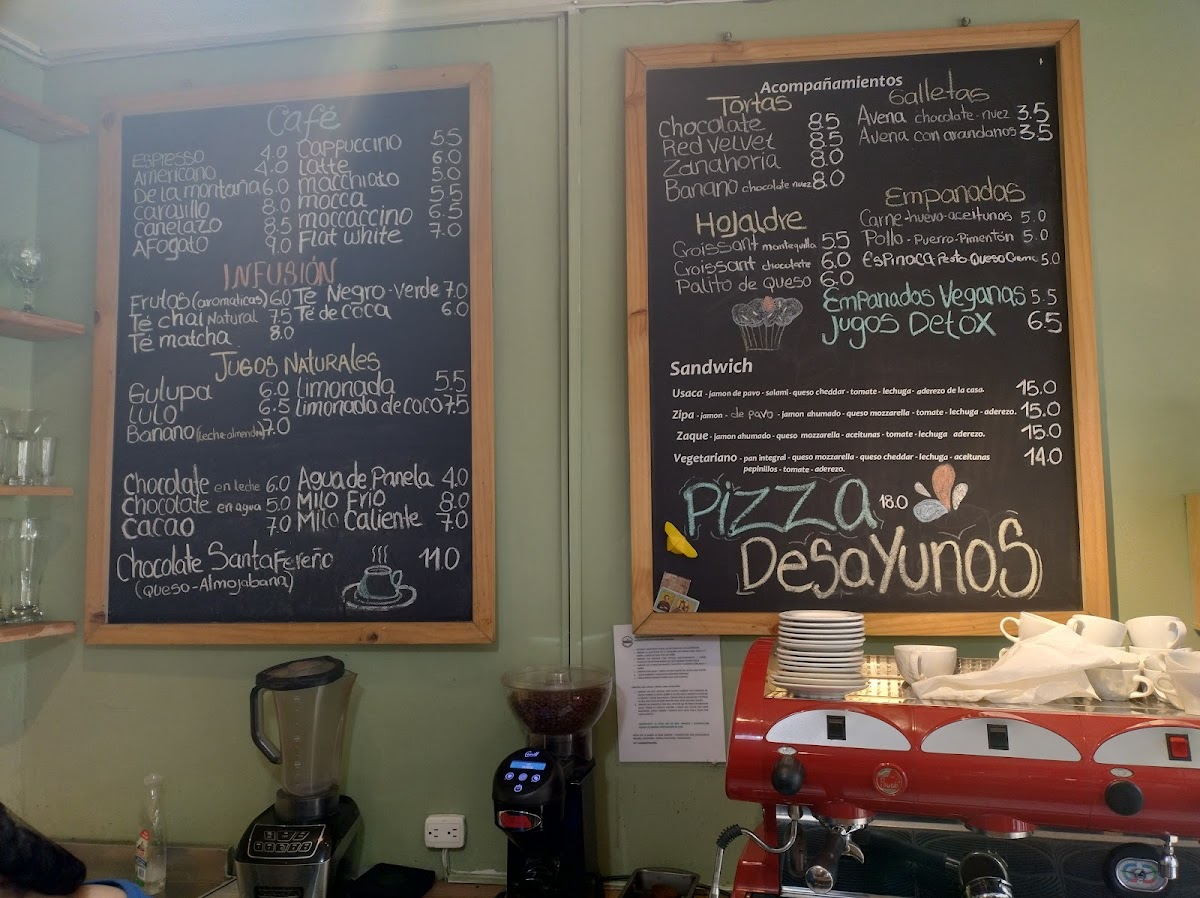 Café
Espresso 4.0
Americano 4.0
De la montaña 6.0
Carajillo 8.0
Canelazo 8.5
Afogato 9.0
Cappuccino 5.5
Latte 6.0
Macchiato 5.0
Mocca 5.5
Moccaccino 6.5
Flat white 7.0
INFUSIÓN
Frutas (aromaticas) 6.0
Té chai Natural 7.5
Té matcha 8.0
Té Negro - Verde 7.0
Té de coca 6.0
Jugos Naturales
Gulupa 6.0
Lulo 6.5
Banano (leche-almendra) 7.0
Limonada 5.5
Limonada de coco 7.5
Chocolate en leche 6.0
Chocolate en agua 5.0
Cacao 7.0
Agua de Panela 4.0
Milo Frío 8.0
Milo Caliente 7.0
Chocolate Santafereño 11.0
(Queso-Almojabana)
Acompañamientos
Tortas
Chocolate 8.5
Red velvet 8.5
Zanahoria 8.0
Banano chocolate nuez 8.0
Galletas
Avena chocolate-nuez 3.5
Avena con arandanos 3.5
Hojaldre
Croissant mantequilla 5.5
Croissant chocolate 6.0
Palito de queso 6.0
Empanadas
Carne-huevo-aceitunas 5.0
Pollo-Puerro-Pimentón 5.0
Espinaca Pesto Queso Crema 5.0
Empanadas Veganas 5.5
Jugos Detox 6.5
Sandwich
Usaca - jamon de pavo - salami - queso cheddar - tomate - lechuga - aderezo de la casa. 15.0
Zipa - jamon - de pavo - jamon ahumado - queso mozzarella - tomate - lechuga - aderezo. 15.0
Zaque - jamon ahumado - queso mozzarella - aceitunas - tomate - lechuga aderezo. 15.0
Vegetariano - pan integral - queso mozzarella - queso cheddar - lechuga - aceitunas 14.0
pepinillos - tomate - aderezo.
Pizza 18.0
Desayunos